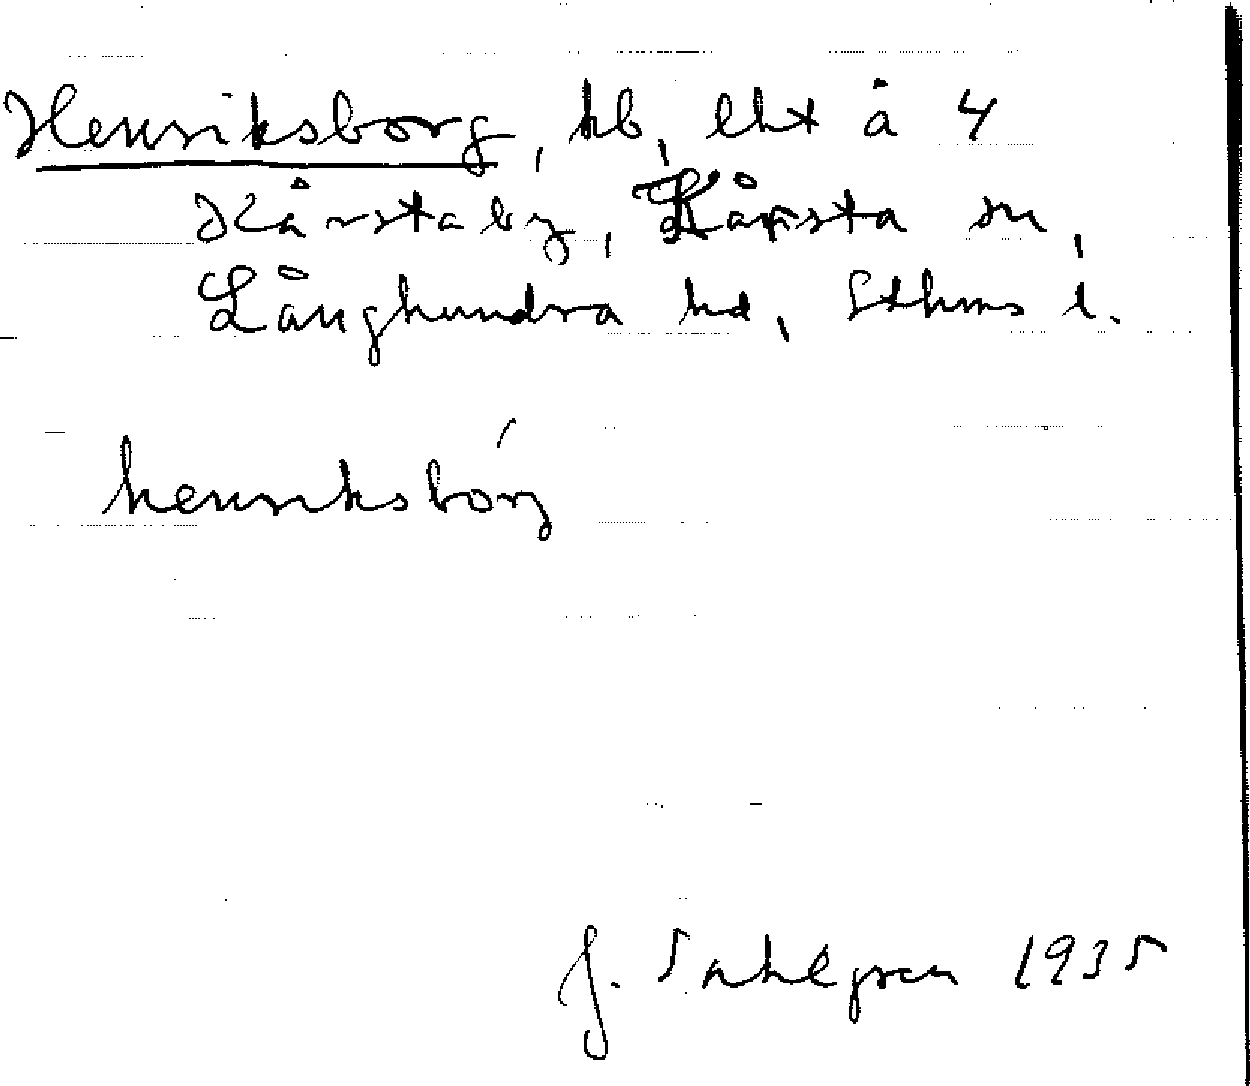 Henriksborg, hb, lht å 4
Kårstaby, Kårsta sn,
Långhundra hd, Sthms l.
henriksbórg
J. Sahlgren 1935